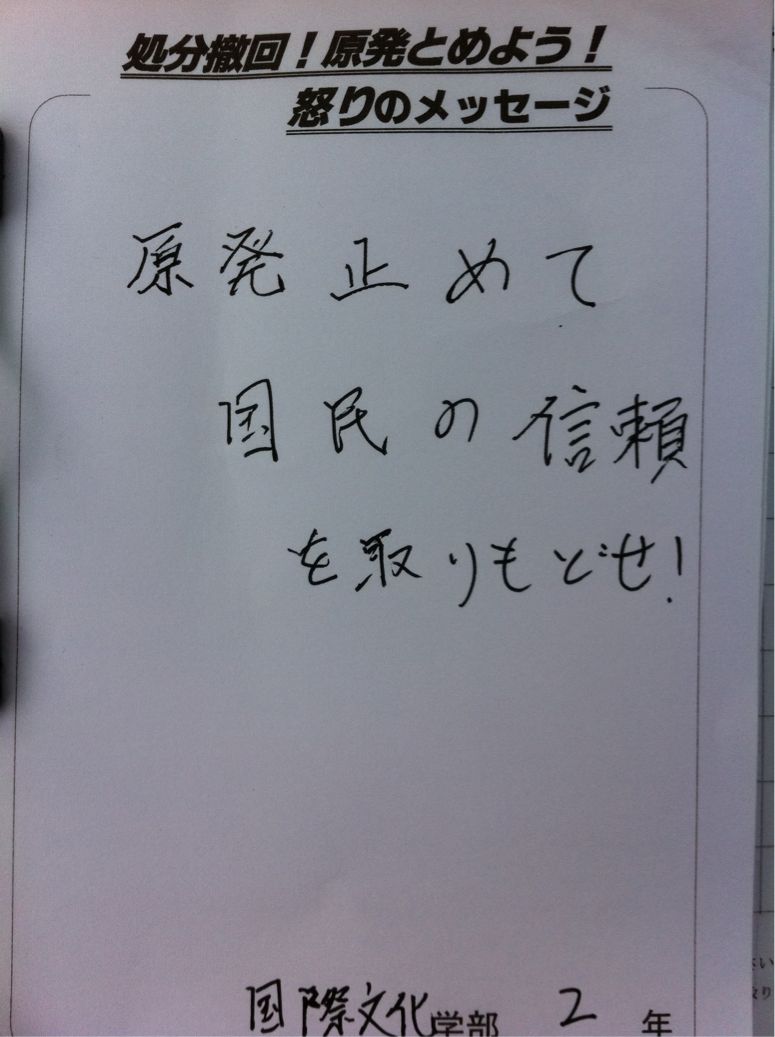 処分撤回！原発とめよう！
怒りのメッセージ
原発止めて
国民の信頼
を取りもどせ!
国際文化学部 2 年